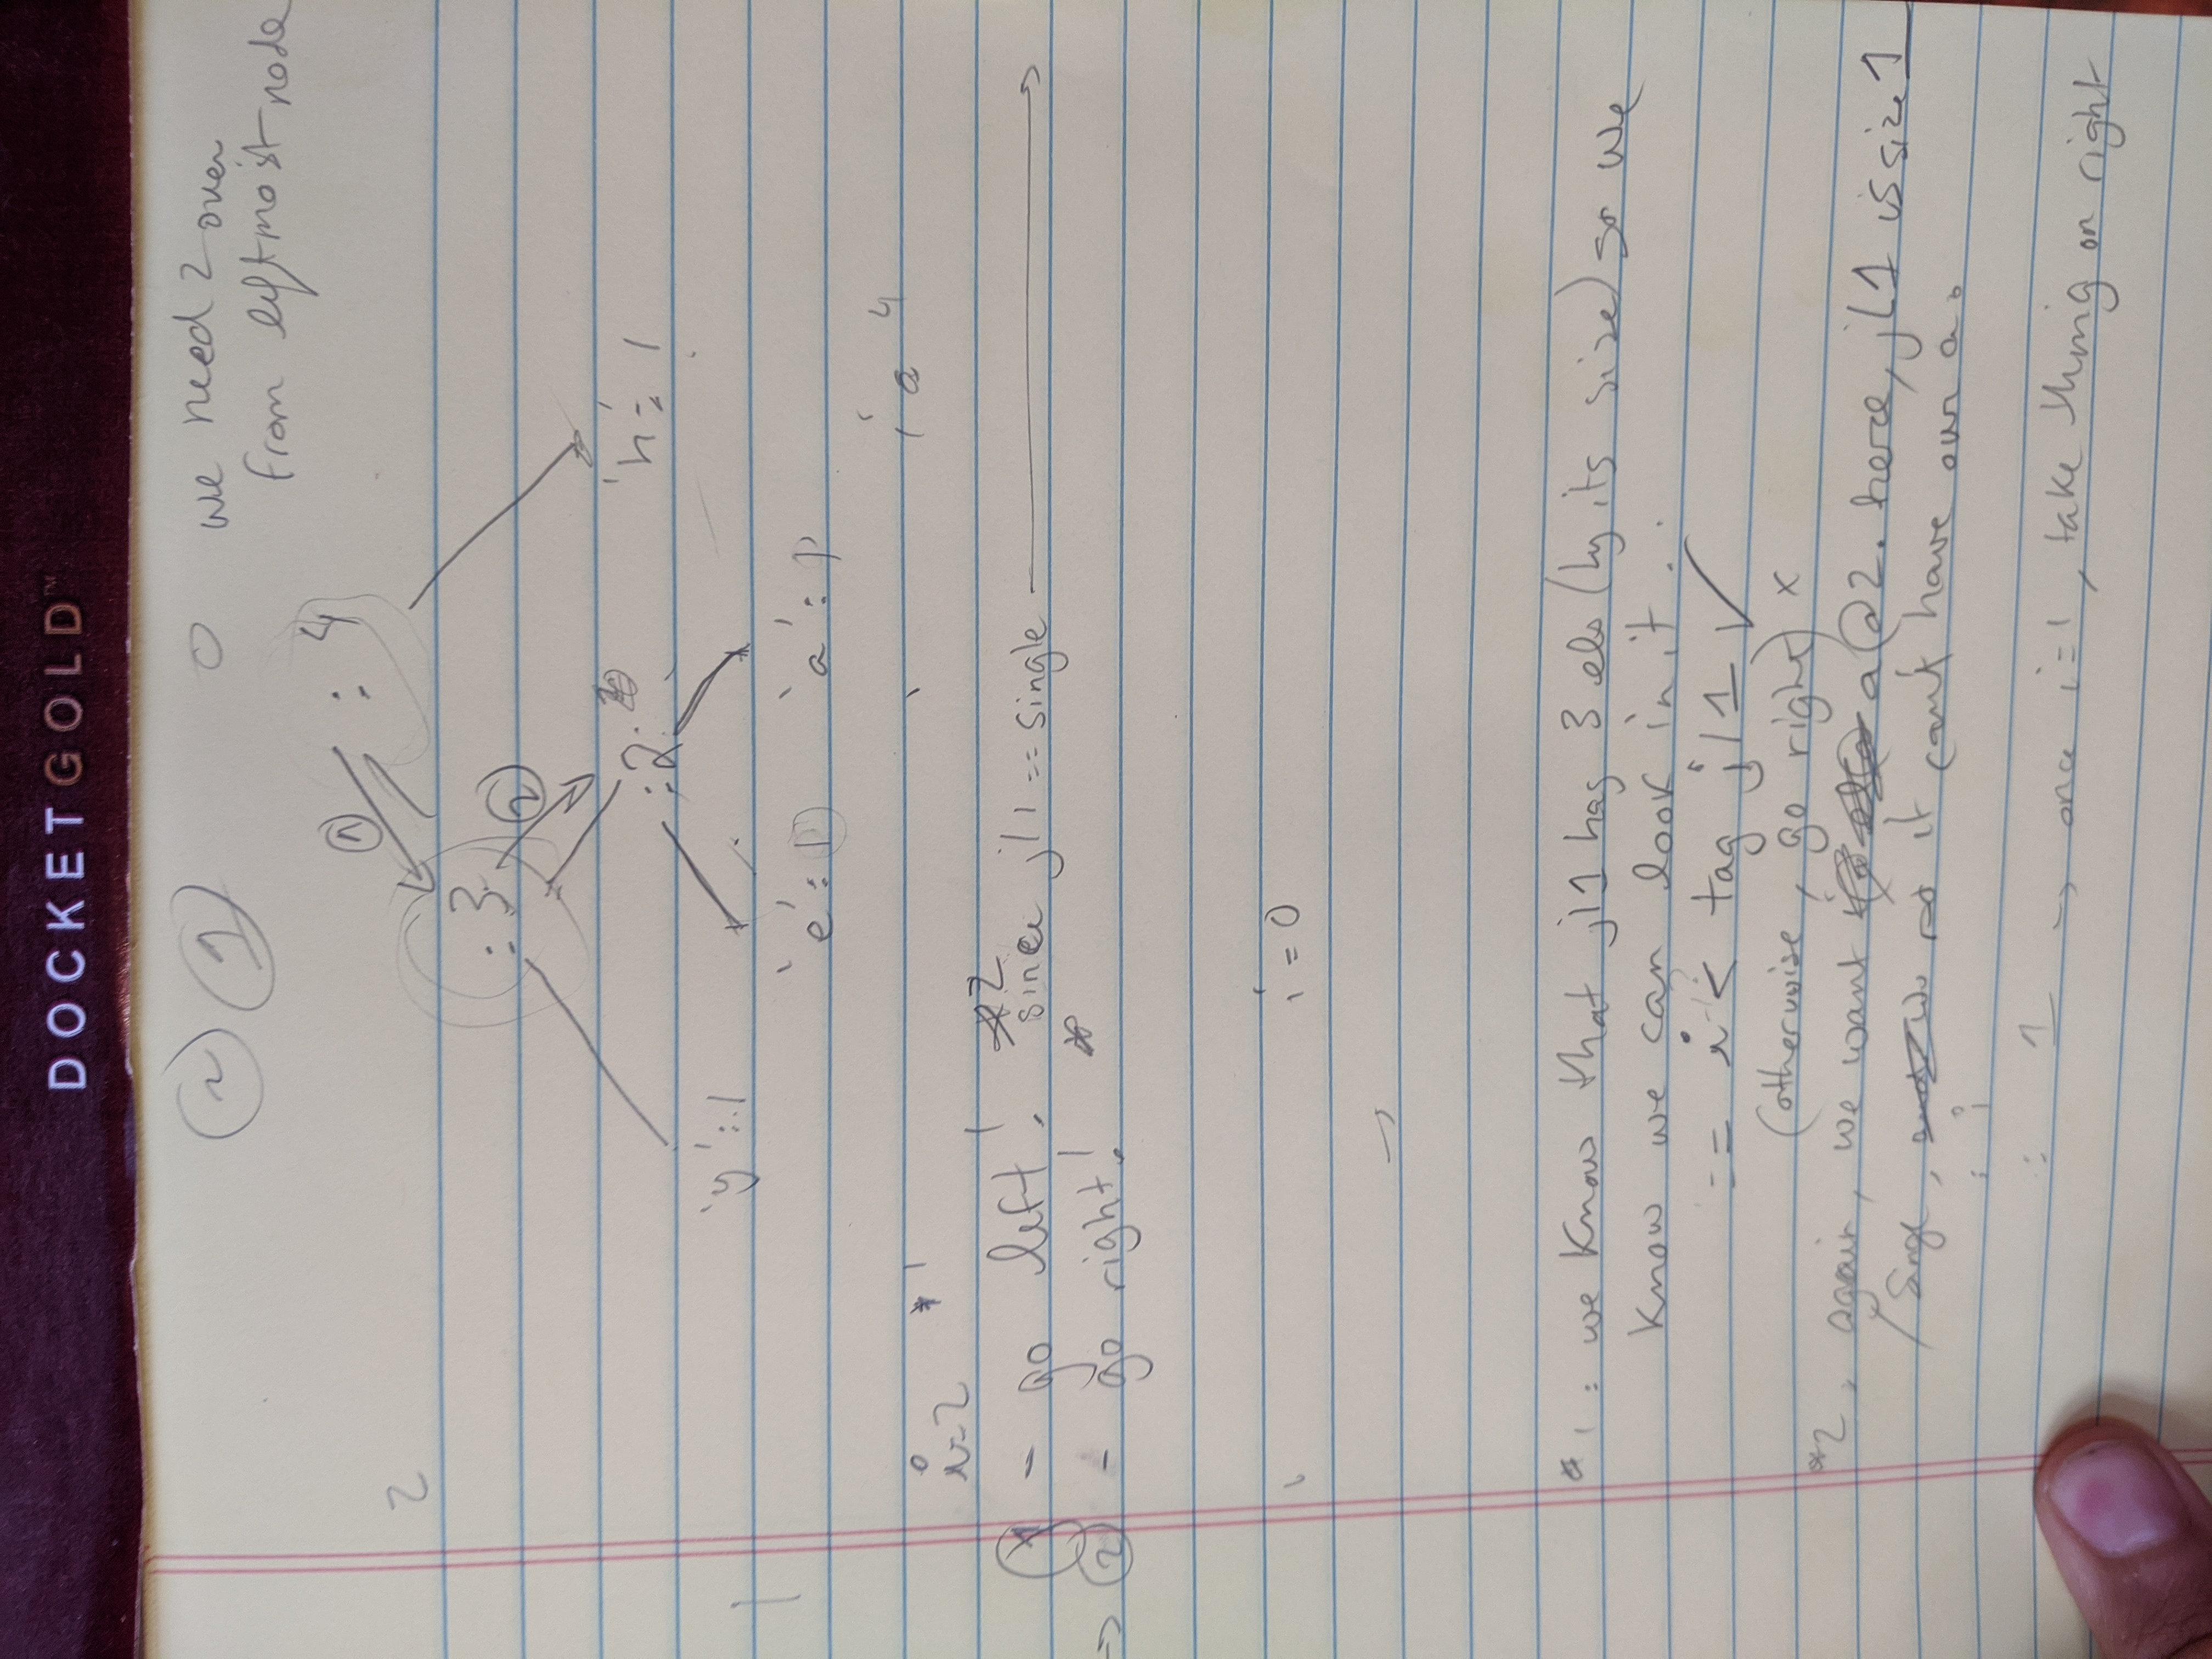 DOCKET GOLD™
2 1 0 we need 2 over
from leftmost node
: 4
1
2
: 3
2
: 2
'h' = 1
'y' : 1
'e' : 1 'a' : 1
i=2 *1
1 - go left! , *2 since jl1 == single
=> 2 - go right! *
i = 0
*1 : we know that jl1 has 3 els (by its size) so we
know we can look in it.
== i < tag jl1 ✓
(otherwise, go right) x
*2, again, we want a @2. here, jl1 is size 1
so it can't have our a.
: 1 -> once i=1, take thing on right